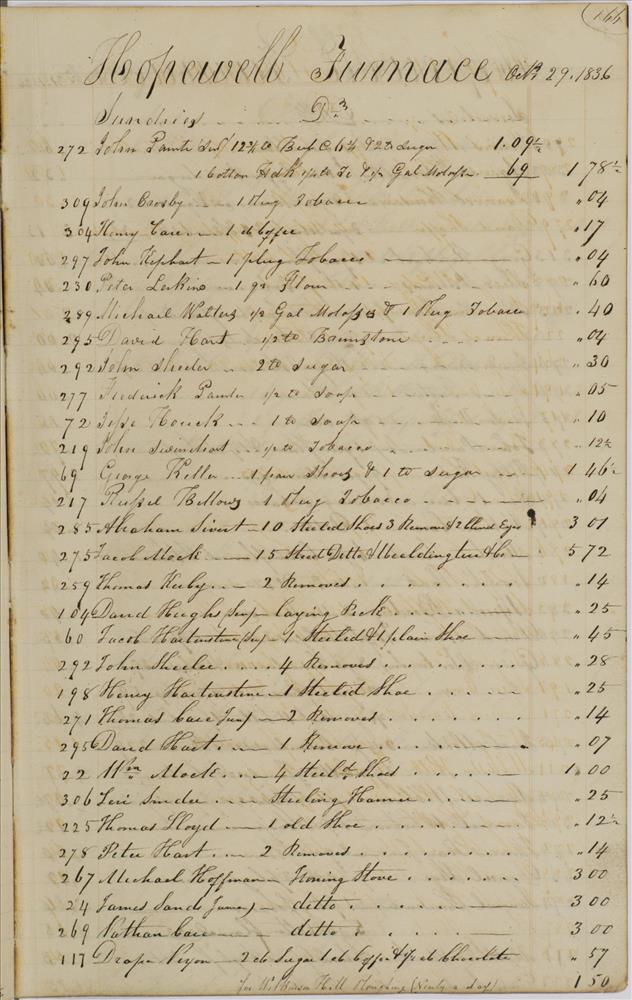 166
Hopewell Furnace Octr 29. 1836
Sundries Drs
272 John Painter Junr 12 3/4 lb Beef @ 6 1/4 & 2 lb Sugar 1.09 1/2
1 Cotton Hdk 1/2 lb & 1/2 Gal Molasses 69 1 78 1/2
309 John Crosby 1 Plug Tobacco " 04
304 Henry Care 1 lb Coffee " 17
297 John Kephart 1 plug Tobacco " 04
230 Peter 1 qr Flour " 60
289 Michael Walters 1/2 Gal Molasses & 1 Plug Tobacco " 40
295 David Hart 1/2 lb Brimstone " 04
292 John Sheeler 2 lb Sugar " 30
277 Frederick Painter 1/2 lb Soap " 05
72 Jesse Houck 1 lb Soap " 10
219 John Swinehart 1/2 lb Tobacco " 12 1/2
69 George Keller 1 pair Shoes & 1 lb Sugar 1 46 1/2
217 Russel Bellows 1 Plug Tobacco " 04
285 Abraham Sivert 10 Steeled Shoes 3 Removes & 2 Eyes 3 01
275 Jacob Mock 15 Steel Ditto & & Co 5 72
259 Thomas Kirby 2 Removes " 14
104 David Hughs (Sen) laying Pick " 25
60 Jacob Hartenstine (Sen) 1 Steeled & 1 plain Shoe " 45
292 John Sheeler 4 Removes " 28
198 Henry Hartenstine 1 Steeled Shoe " 25
271 Thomas Care Junr 2 Removes " 14
295 David Hart 1 Remove " 07
22 Wm Mock 4 Steeld Shoes 1 00
306 Levi Steeling Hammer " 25
225 Thomas Lloyd 1 old Shoe " 12 1/2
278 Peter Hart 2 Removes " 14
267 Michael Hoffman Ironing Stove 3 00
24 James Sands ditto 3 00
269 Nathan Care ditto 3 00
117 2 lb Sugar 1 lb Coffee & lb Chocolate " 57
for Wilkinson Hill Ploughing 1 50